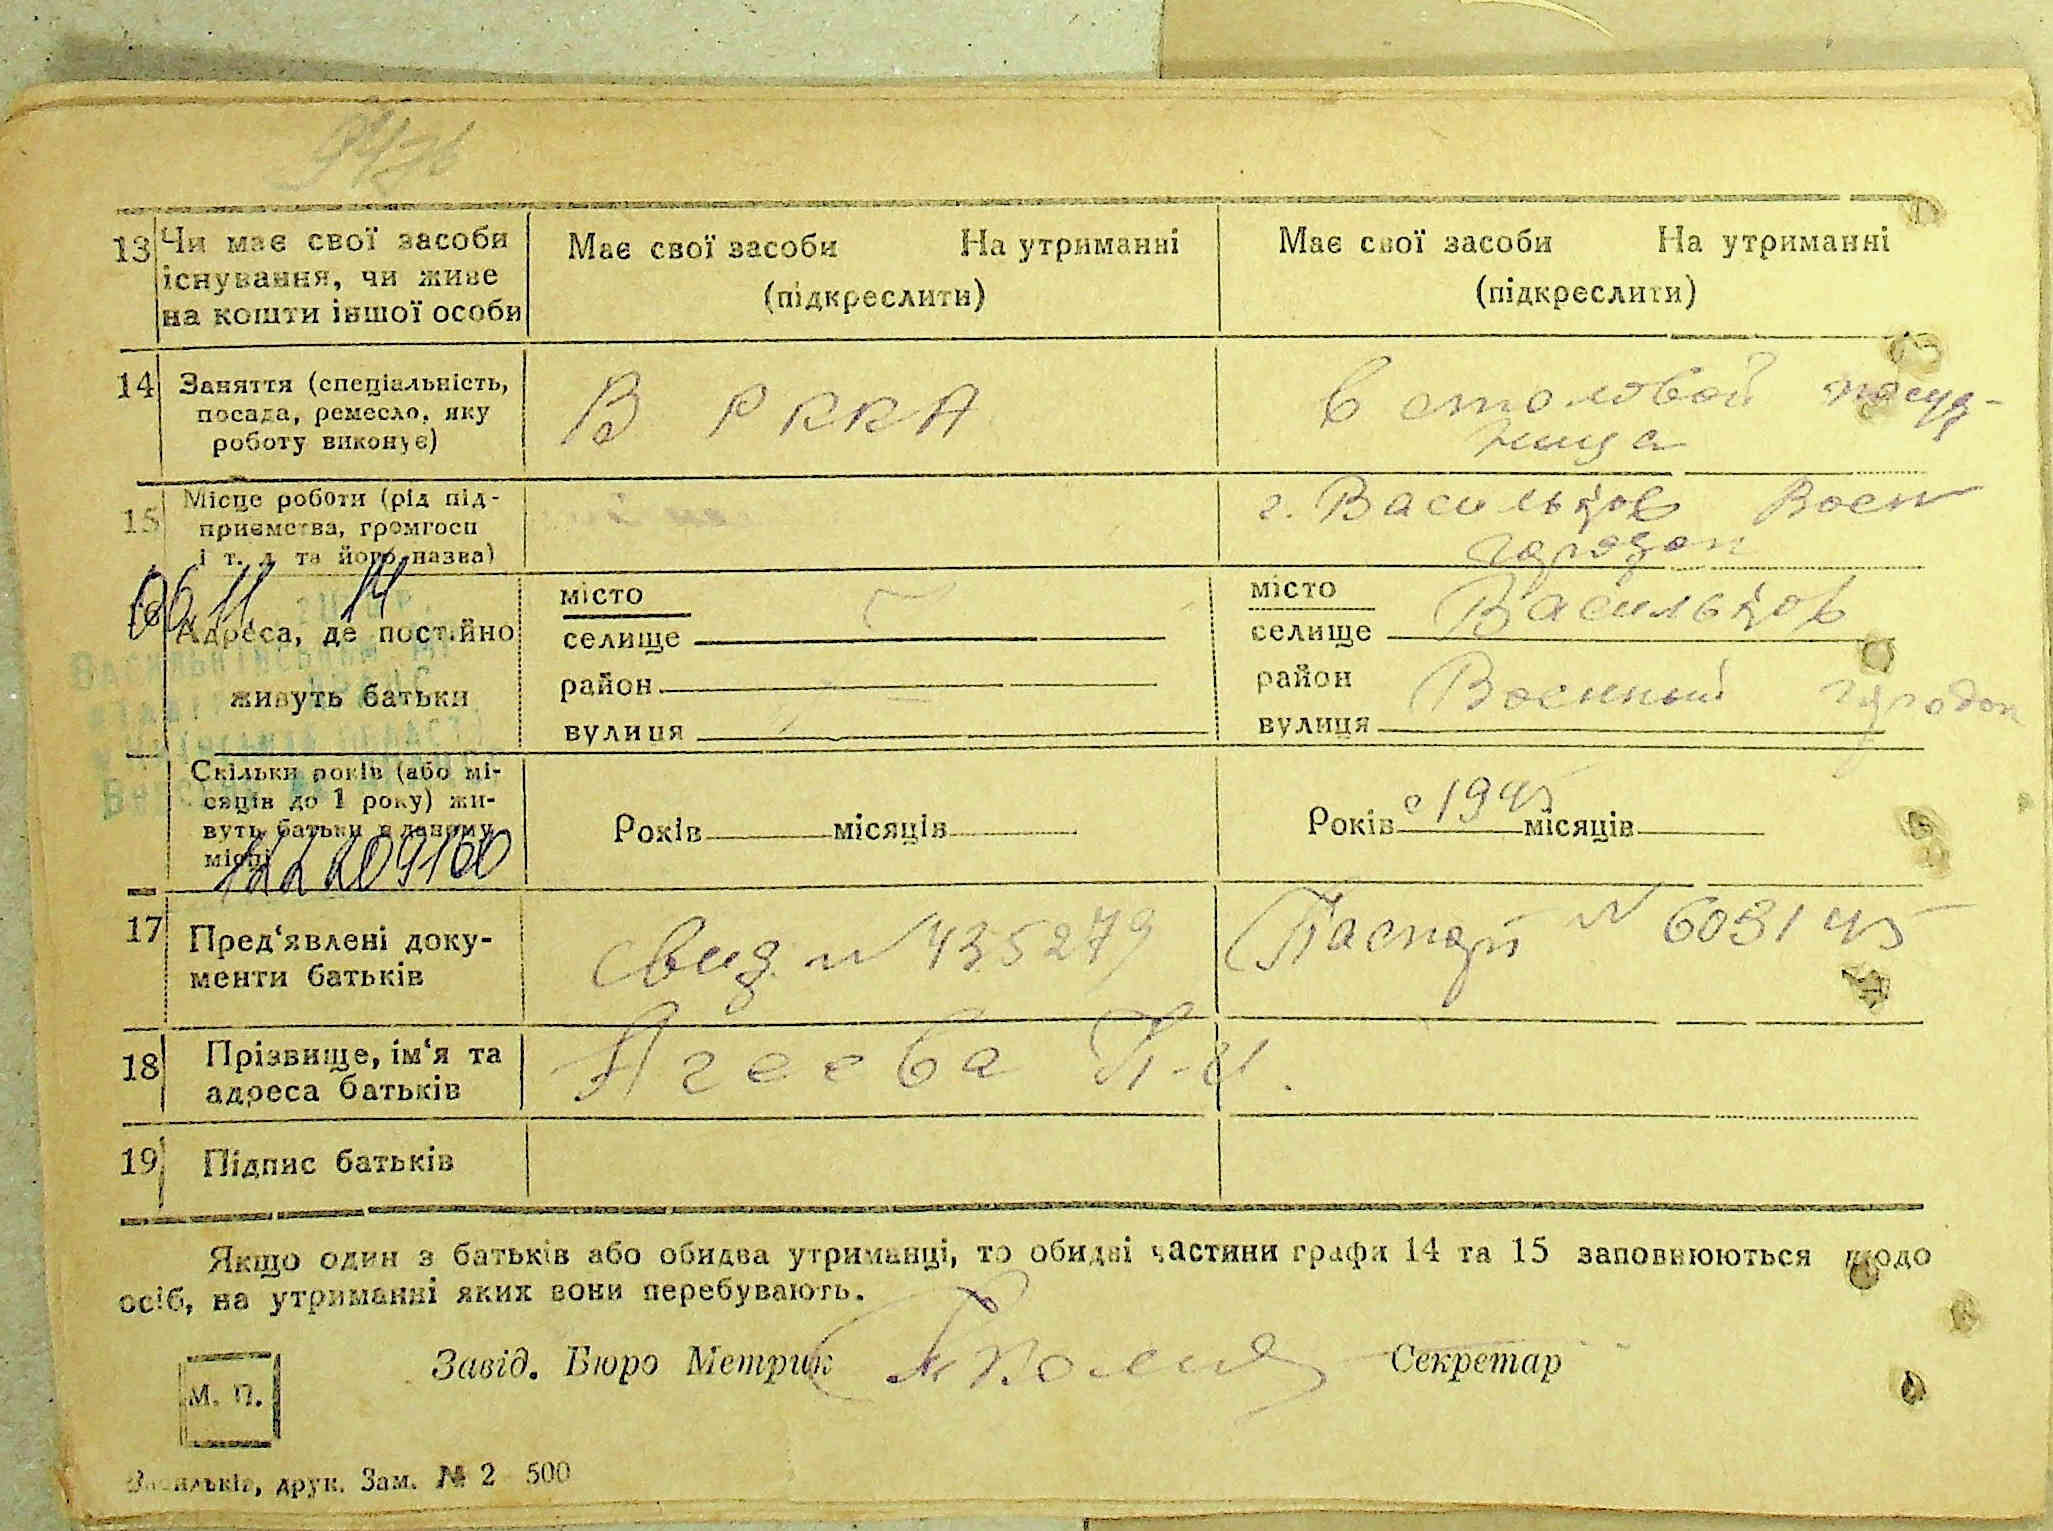 13 Чи має свої засоби існування, чи живе на кошти іншої особи
Має свої засоби На утриманні
(підкреслити)
Має свої засоби На утриманні
(підкреслити)
14 Заняття (спеціальність,
посада, ремесло, яку
роботу виконує)
В РККА
в столовой посуд-
ница
15 Місце роботи (рід під-
приємства, громгосп
і т. д. та його назва)
г. Васильков Воен
городок
Адреса, де постійно
живуть батьки
місто
селище
район
вулиця
місто
селище Васильков
район
вулиця Военный городок
Скільки років (або мі-
сяців до 1 року) жи-
вуть батьки в даному
місці
Років місяців
Років с 1945 місяців
17 Пред‘явлені доку-
менти батьків
Свид. № 435279
Паспорт № 603145
18 Прізвище, ім‘я та
адреса батьків
Агеева П. И.
19 Підпис батьків
Якщо один з батьків або обидва утриманці, то обидві частини графи 14 та 15 заповнюються щодо
осіб, на утриманні яких вони перебувають.
Завід. Бюро Метрик Секретар
М. П.
Васильків, друк. Зам. № 2 500